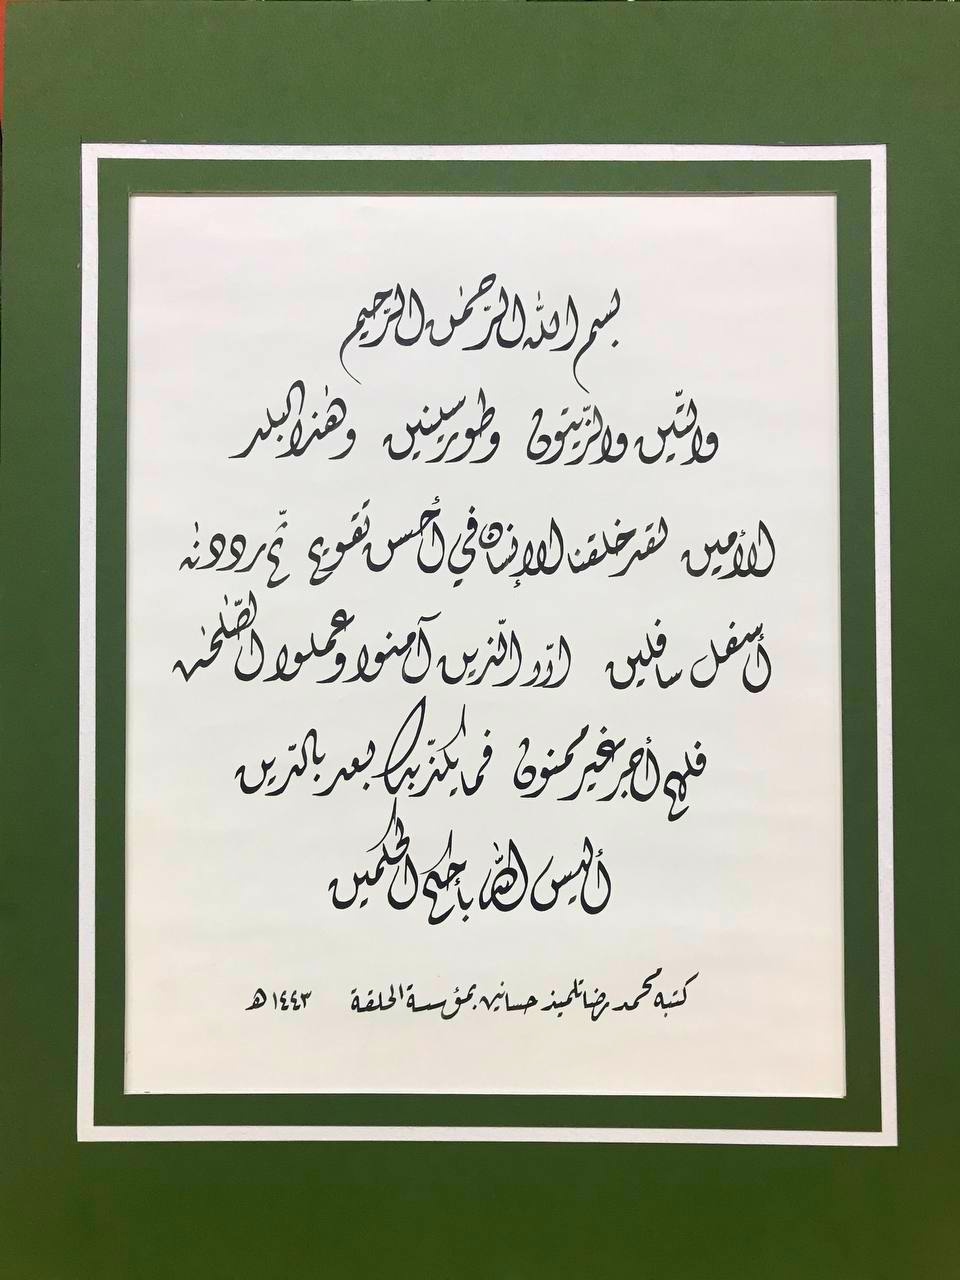 بسم الله الرّحمٰن الرّحيم
والتّين والزّيتون وطور سينين وهٰذا البلد
الأمين لقد خلقنا الإنسان في أحسن تقويم ثمّ رددنٰه
أسفل سافلين إلّا الّذين آمنوا وعملوا الصّٰلحٰت
فلهم أجر غير ممنون فما يكذّبك بعد بالدّين
أليس اللّٰه بأحكم الحٰكمين
كتبه محمد رضا تلميذ حسانين بمؤسسة الحلقة ١٤٤٣هـ